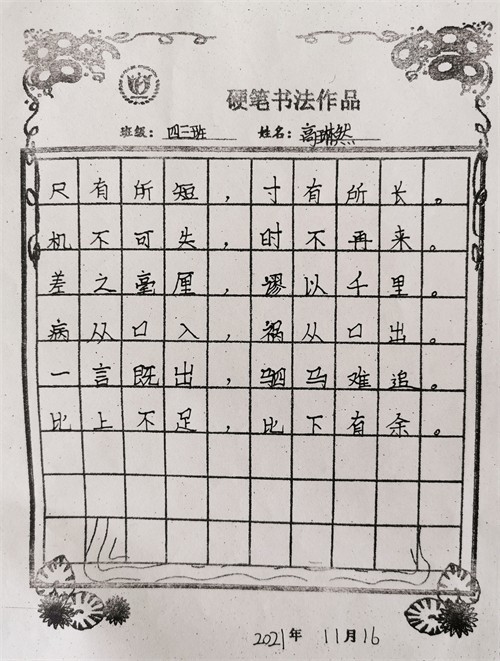 硬笔书法作品
班级：四三班 姓名：高琳然
尺有所短，寸有所长。
机不可失，时不再来。
差之毫厘，谬以千里。
病从口入，祸从口出。
一言既出，驷马难追。
比上不足，比下有余。
2021年 11月16